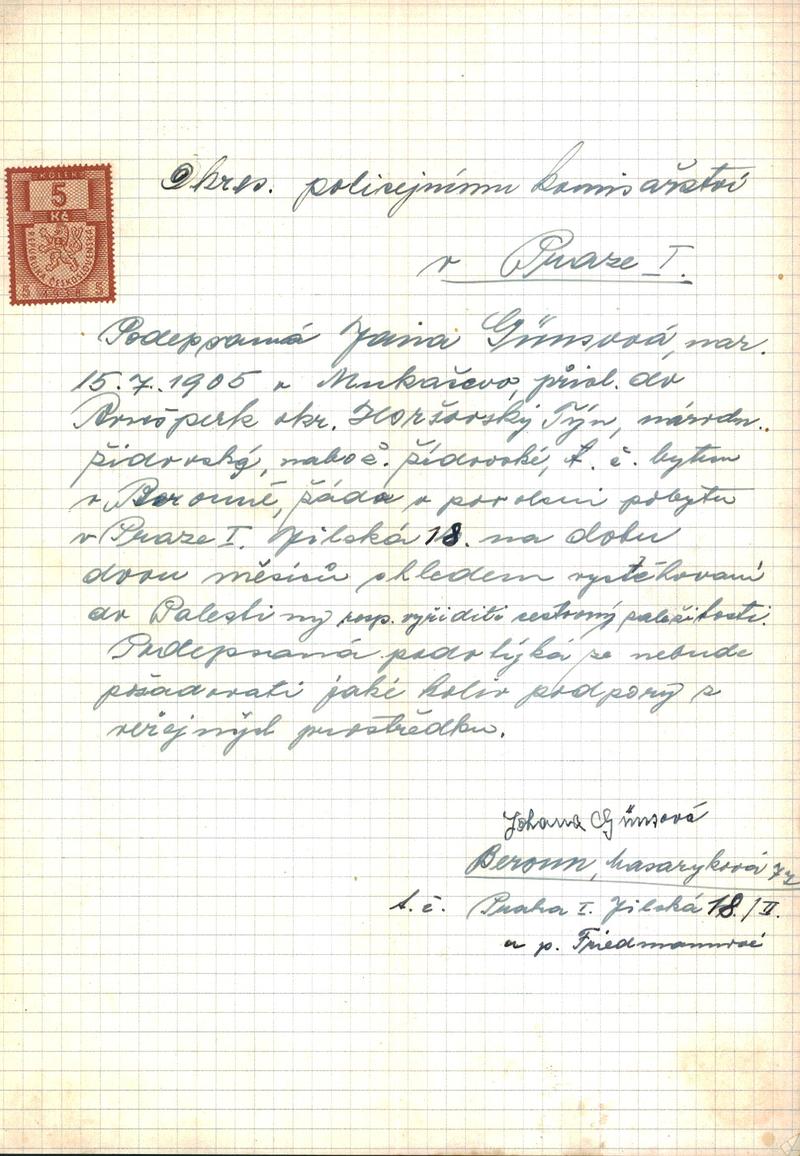 KOLEK
5
Kč
REPUBLIKA ČESKOSLOVENSKÁ
5 5
Okres. policejnímu komisařství
v Praze I.
Podepsaná Jana Günsová, nar.
15.7.1905 v Mukačevo, přísl. do
Arnošperk okr. Horšovský Týn, národn.
židovský, nabož. židovské, t. č. bytem
v Berouně, žáda o povolení pobytu
v Praze I. Jilská 18. na dobu
dvou měsíců ohledem vystěhovaní
do Palestiny resp. vyříditi cestovný zaležitosti.
Podepsaná podotýká že nebude
požadovati jaké koliv podpory z
veřejných prostředku.
Johana Günsová
Beroun, Masaryková
t. č. Praha I. Jilská 18./II.
u p. Friedmannové